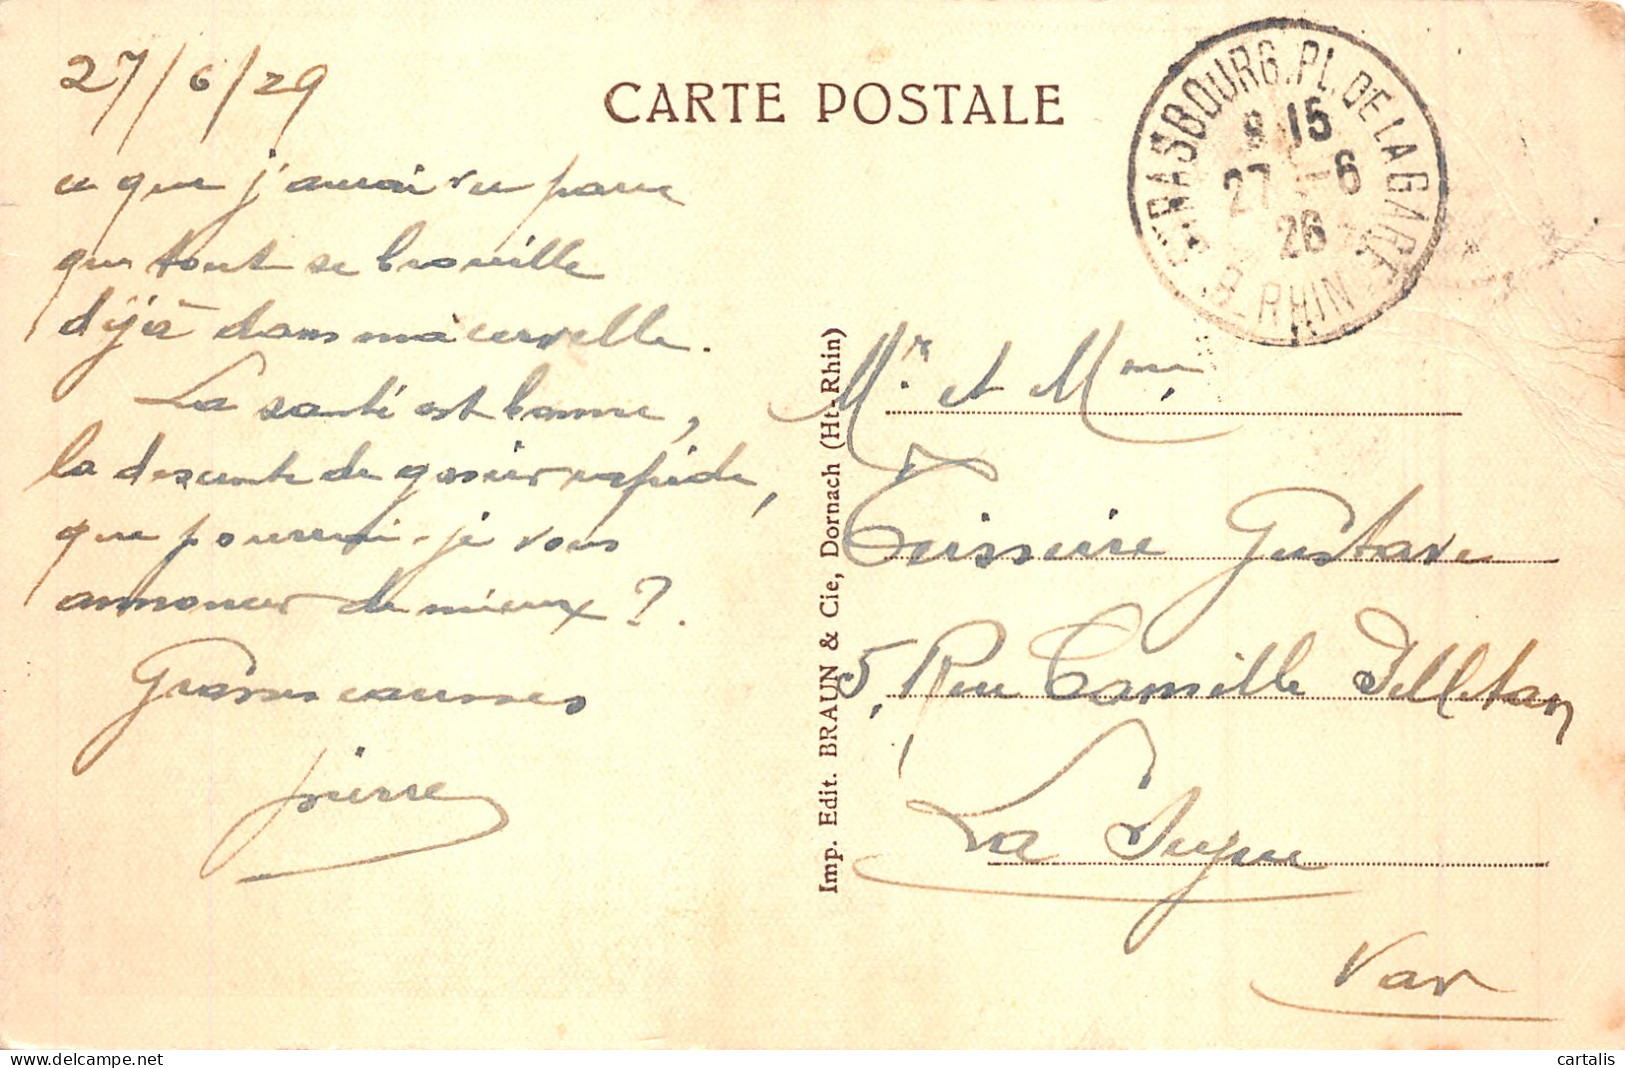 27/6/29
CARTE POSTALE
ce que j'aurai vu parce
que tout se brouille
déjà dans ma cervelle.
La santé est bonne,
la descente de gosier rapide,
que pourrai-je vous
annoncer de mieux ?.
Grosses caresses
Pierre
STRASBOURG. PL. DE LA GARE
8 15
27 -6
26
Bas RHIN
Imp. Edit. BRAUN & Cie, Dornach (Ht-Rhin)
Mr et Mme
Teisseire Gustave
5, Rue Camille Pelletan
La Seyne
Var
cartalis
delcampe.net